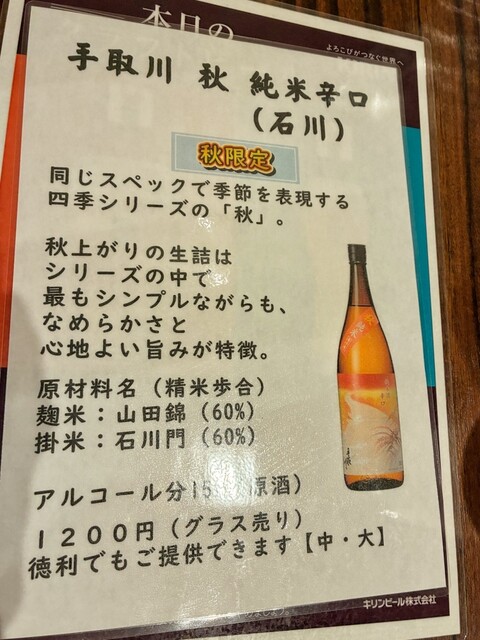 本日の
よろこびがつなぐ世界へ
手取川 秋 純米辛口
(石川)
秋限定
同じスペックで季節を表現する
四季シリーズの「秋」。
秋上がりの生詰は
シリーズの中で
最もシンプルながらも、
なめらかさと
心地よい旨みが特徴。
原材料名(精米歩合)
麹米:山田錦(60%)
掛米:石川門(60%)
アルコール分15 原酒)
1200円(グラス売り)
徳利でもご提供できます【中・大】
キリンビール株式会社